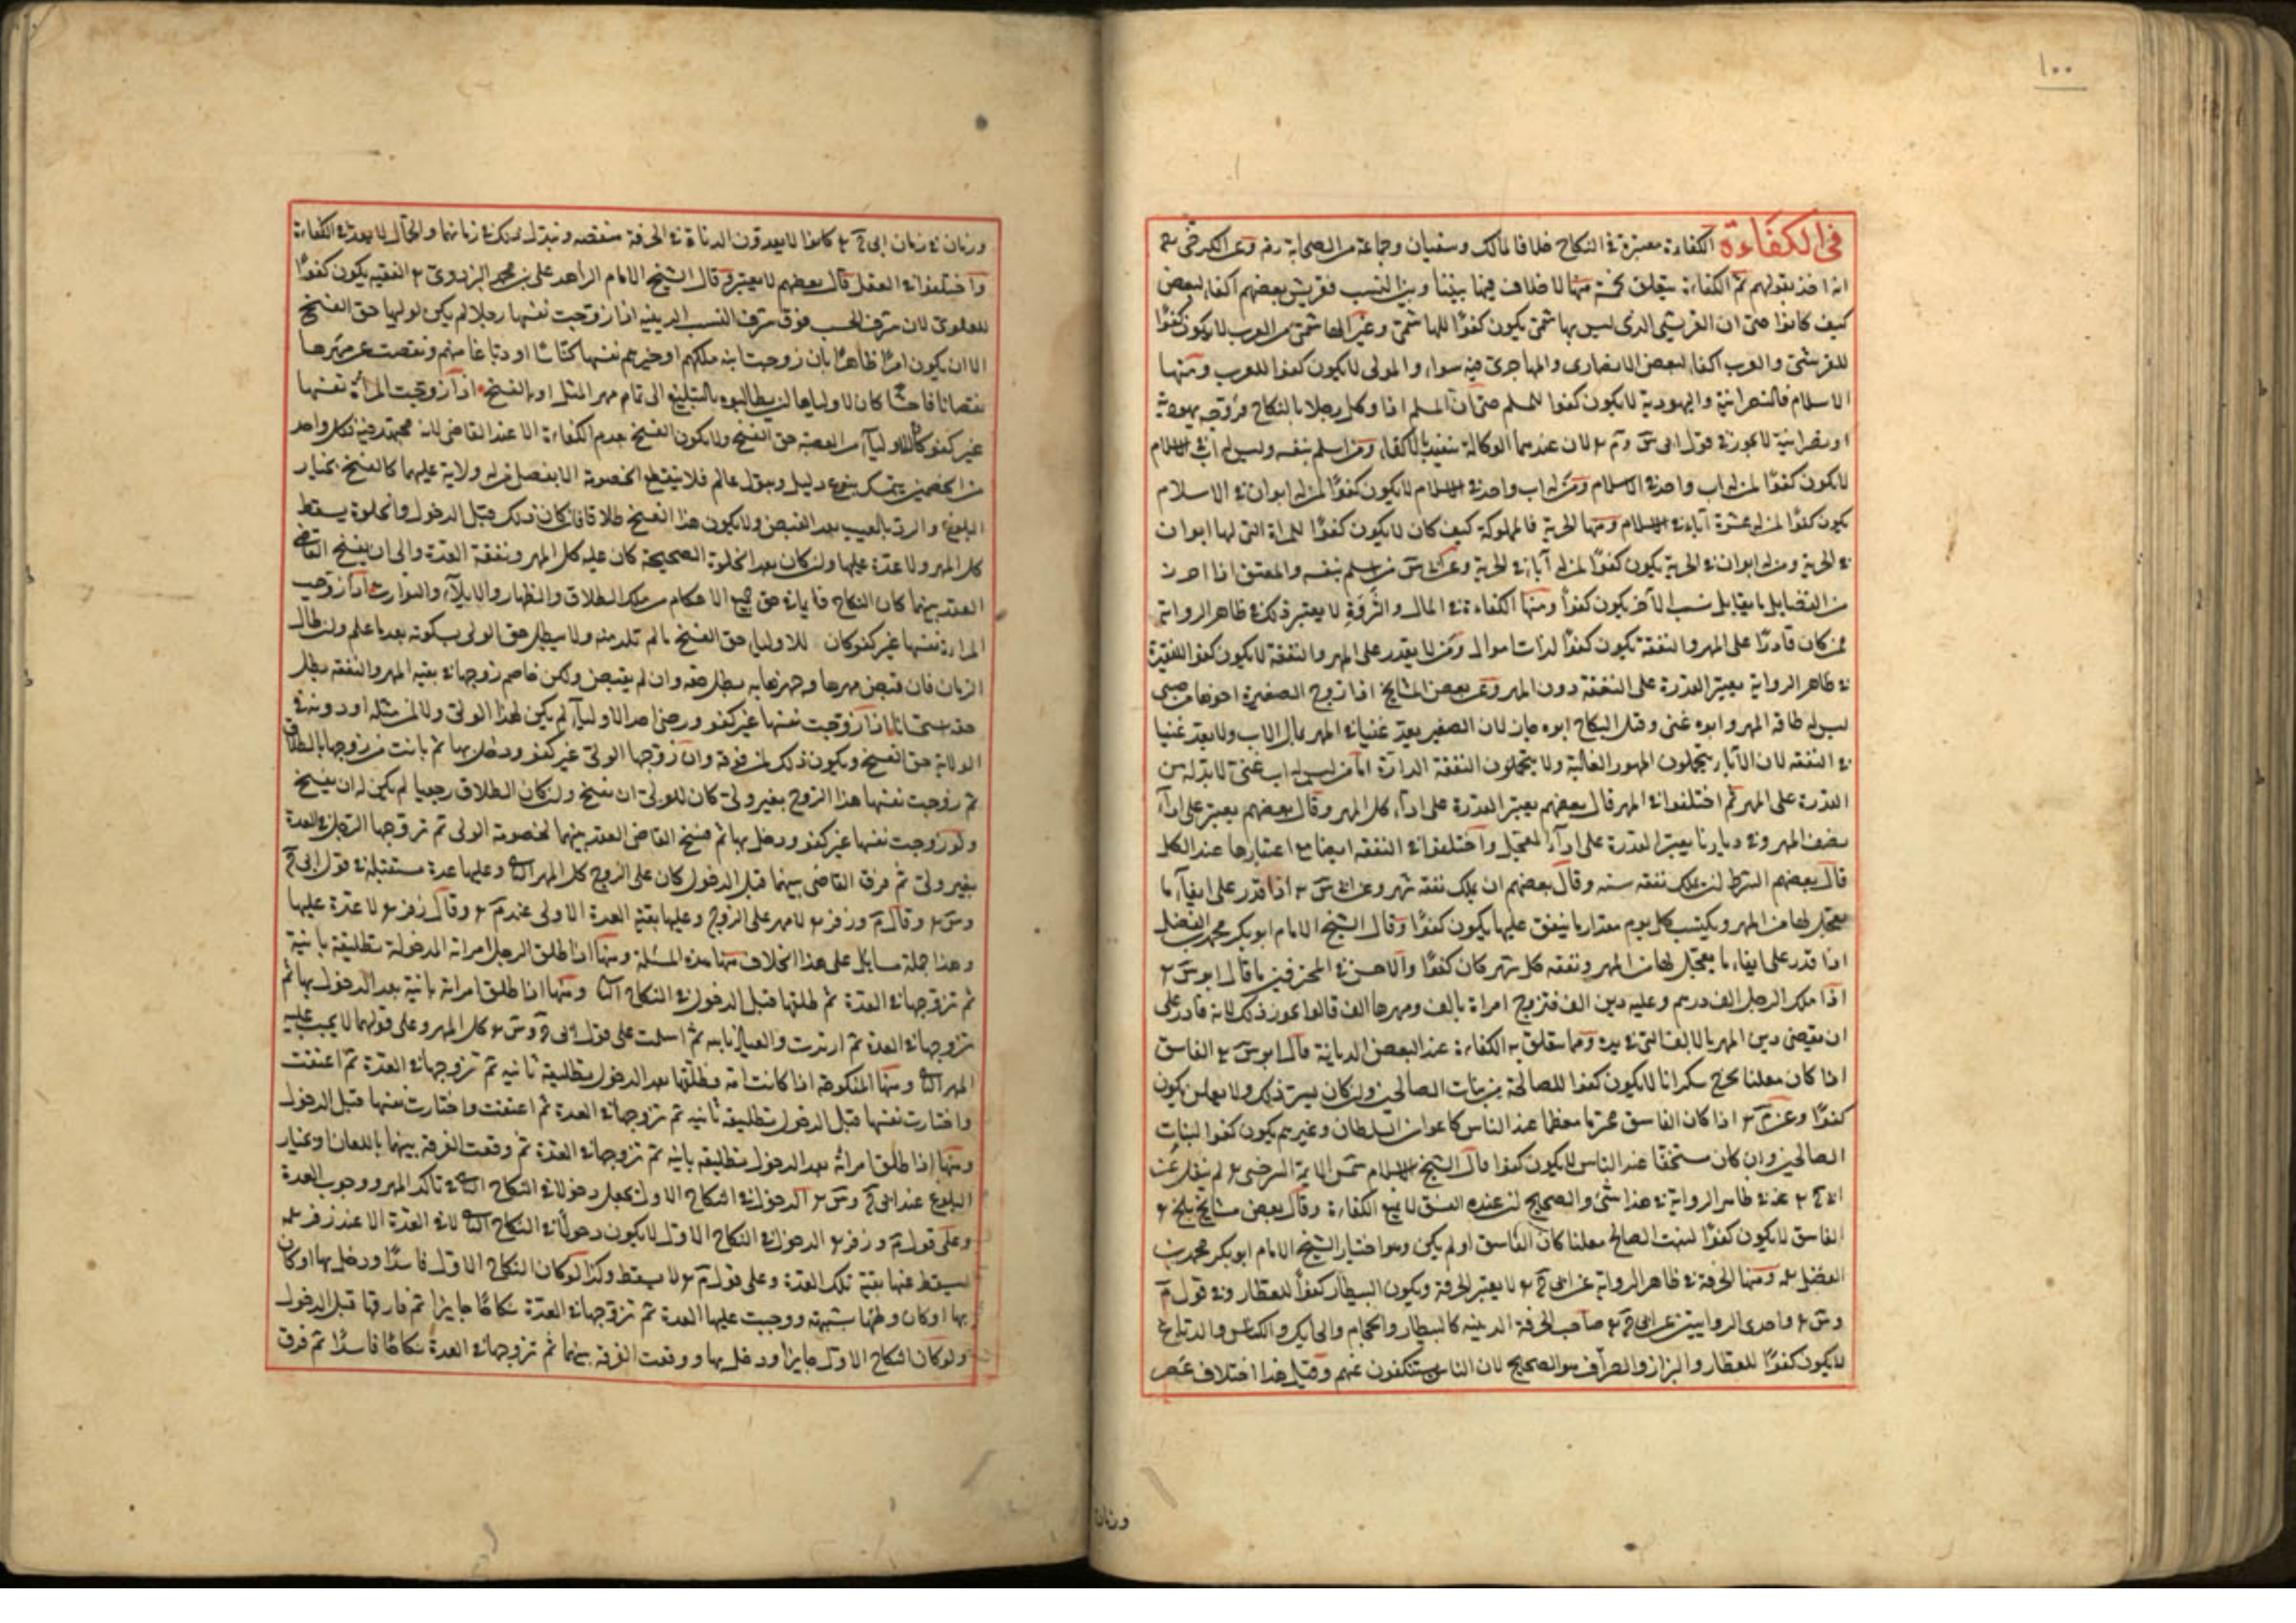 ١٠٠
في الكفاءة الكفاءة معتبرة في النكاح خلافا لمالك وسفيان وجماعة من الصحابة رضه وعن الكرخي
انه اخذ بقولهم ثم الكفاءة يتعلق بخمسة منها لا خلاف فيها بيننا وبين النسب فقريش بعضهم اكفاء لبعض
كيف كانوا حتى ان القرشي الذي ليس بهاشمي يكون كفوًا للهاشمي وغير الهاشمي من العرب لا يكون كفوًا
للقرشي والعرب اكفاء لبعض الانصاري والمهاجري فيه سواء والموالي لا يكون كفوا للعرب ومنها
الاسلام فالنصرانية واليهودية لا يكون كفوا للمسلم حتى ان المسلم اذا وكل رجلا بالنكاح فزوجه يهودية
او نصرانية لا يجوز في قول ابي س وم لان عندهما الوكالة تتقيد بالاكفاء ومن اسلم بنفسه وليس له اب في الاسلام
لا يكون كفوًا لمن له اب واحد في الاسلام ومن له اب واحد في الاسلام لا يكون كفوًا لمن له ابوان في الاسلام
يكون كفوًا لمن له عشرة آباء في الاسلام ومنها الحرية فالمملوكة كيف كان لا يكون كفوًا للمراة التي لها ابوان
في الحرية ومن له ابوان في الحرية يكون كفوًا لمن له آباء في الحرية وعن س من اسلم بنفسه والمعتق اذا احرز
من الفضايل ما يقابل نسب الآخر يكون كفوًا ومنها الكفاءة في المال والثروة لا يعتبر ذلك في ظاهر الرواية
فمن كان قادرًا على المهر والنفقة يكون كفوًا لذات اموال ومن لا يقدر على المهر والنفقة لا يكون كفوا للفقيرة
في ظاهر الرواية يعتبر القدرة على النفقة دون المهر وعن بعض المشايخ اذا زوج الصغيرة اخوها من صبي
ليس له طاقة المهر وابوه غني وقبل النكاح ابوه جاز لان الصغير يعد غنيا في المهر بمال الاب ولا يعد غنيا
في النفقة لان الآباء يتحملون المهور الغالية ولا يتحملون النفقة الدارة اما من ليس له اب غني لا بد له من
القدرة على المهر ثم اختلفوا في المهر قال بعضهم يعتبر القدرة على اداء كل المهر وقال بعضهم يعتبر على اداء
نصف المهر وفي ديارنا يعتبر القدرة على اداء المعجل واختلفوا في النفقة ايضا مع اعتبارها عند الكل
قال بعضهم الشرط ان يملك نفقة سنة وقال بعضهم ان يملك نفقة شهر وعن س اذا قدر على ايفاء ما
يعجل لها من المهر ويكتسب كل يوم مقدار ما ينفق عليها يكون كفوًا وقال الشيخ الامام ابو بكر محمد بن الفضل
اذا قدر على ايفاء ما يعجل لها من المهر ونفقه كل شهر كان كفوًا والاحسن في المحترفين ما قال ابو س
اذا ملك الرجل الف درهم وعليه دين الف فتزوج امراة بالف ومهرها الف قالوا يجوز ذلك لانه قادر على
ان يقضي دين المهر بالالف التي في يده ومما يتعلق به الكفاءة عند البعض الديانة قال ابو س الفاسق
اذا كان معلنا يخرج سكرانا لا يكون كفوا للصالحة من بنات الصالحين وان كان يستر ذلك ولا يعلن يكون
كفوًا وعن م اذا كان الفاسق محترما معظما عند الناس كاعوان السلطان وغيرهم يكون كفوا لبنات
الصالحين وان كان مستخفا عند الناس لا يكون كفوا قال الشيخ الاسلام شمس الايمة السرخسي لم ينقل عن
ابي ح في ظاهر الرواية في هذا شيء والصحيح ان عنده الفسق لا يمنع الكفاءة وقال بعض مشايخ بلخ
الفاسق لا يكون كفوًا لبنت الصالح معلنا كان الفاسق او لم يكن وهو اختيار الشيخ الامام ابو بكر محمد بن
الفضل ومنها الحرفة في ظاهر الرواية عن ابي ح لا يعتبر الحرفة ويكون البيطار كفوًا للعطار وفي قول م
وس واحدى الروايتين عن ابي ح صاحب الحرفة الدنية كالبيطار والحجام والحايك والكناس والدباغ
لا يكون كفوًا للعطار والبزاز والصراف هو الصحيح لان الناس يستنكفون عنهم وقيل هذا اختلاف عصر
وزمان
وزمان في زمان ابي ح كانوا لا يعدون الدناة في الحرفة منقصة وتبدل ذلك في زمانهما والحال لا يعد في الكفاءة
واختلفوا في العقل قال بعضهم لا يعتبر وقال الشيخ الامام الزاهد علي بن محمد البزدوي الفقيه يكون كفوًا
للعلوي لان شرف الحسب فوق شرف النسب الدينية اذا زوجت نفسها رجلا لم يكن لوليها حق الفسخ
الا ان يكون امرًا ظاهرًا بان زوجت ابنة ملكهم او خيرهم نفسها كناسًا او دباغا منهم ونقصت عن مهرها
نقصانا فاحشًا كان لاوليايها ان يطالبوه بالتبليغ الى تمام مهر المثل او بالفسخ اذا زوجت المراة نفسها
غير كفو كان للاولياء من العصبة حق الفسخ ولا يكون الفسخ بعدم الكفاءة الا عند القاضي لانه مجتهد فيه فكل واحد
من الخصمين يتمسك بنوع دليل وبقول عالم فلا ينقطع الخصومة الا بفصل من له ولاية عليهما كالفسخ بخيار
البلوغ والرد بالعيب بعد القبض ولا يكون هذا الفسخ طلاقا فان كان ذلك قبل الدخول والخلوة يسقط
كل المهر ولا عدة عليها وان كان بعد الخلوة الصحيحة كان عليه كل المهر ونفقة العدة والى ان يفسخ القاضي
العقد بينهما كان النكاح قايما في حق جميع الاحكام من ملك الطلاق والظهار والايلاء والتوارث اذا زوجت
المراة نفسها غير كفو كان للاولياء حق الفسخ ما لم تلد منه ولا يبطل حق الولي بسكوته بعد ما علم وان طال
الزمان فان قبض مهرها وجهزها به بطل حقه وان لم يقبض ولكن خاصم زوجها في بقية المهر والنفقة بطل
حقه استحسانا اذا زوجت نفسها غير كفو ورضي احد الاولياء لم يكن لهذا الولي ولا لمن مثله او دونه في
الولاية حق الفسخ ويكون ذلك لمن فوقه وان زوجها الولي غير كفو ودخل بها ثم بانت من زوجها بالطلاق
ثم زوجت نفسها هذا الزوج بغير ولي كان للولي ان يفسخ وان كان الطلاق رجعيا لم يكن له ان يفسخ
ولو زوجت نفسها غير كفو ودخل بها ثم فسخ القاضي العقد بينهما لخصومة الولي ثم تزوجها الرجل في العدة
بغير ولي ثم فرق القاضي بينهما قبل الدخول كان على الزوج كل المهر الثاني وعليها عدة مستقبلة في قول ابي ح
وس وقال م وزفر لا مهر على الزوج وعليها بقية العدة الاولى عند م وقال زفر لا عدة عليها
وهذا جملة مسايل على هذا الخلاف منها هذه المسئلة ومنها اذا طلق الرجل امراته المدخولة تطليقة باينة
ثم تزوجها في العدة ثم طلقها قبل الدخول في النكاح الثاني ومنها اذا طلق امراته باينة بعد الدخول بها ثم
تزوجها في العدة ثم ارتدت والعياذ بالله ثم اسلمت على قول ابي ح وس كل المهر وعلى قولهما لا يجب عليه
المهر الثاني ومنها المنكوحة اذا كانت امة فطلقها بعد الدخول تطليقة ثانية ثم تزوجها في العدة ثم اعتقت
واختارت نفسها قبل الدخول تطليقه ثانية ثم تزوجها في العدة ثم اعتقت واختارت نفسها قبل الدخول
ومنها اذا طلق امراته بعد الدخول تطليقه باينه ثم تزوجها في العدة ثم وقعت الفرقة بينهما باللعان او بخيار
البلوغ عند ابي ح وس الدخول في النكاح الاول يجعل دخولا في النكاح الثاني في تاكد المهر ووجوب العدة
وعلى قول م وزفر الدخول في النكاح الاول لا يكون دخولا في النكاح الثاني لانه العدة الا عند زفر
يسقط عنها بقية تلك العدة وعلى قول م لا يسقط وكذا لو كان النكاح الاول فاسدًا ودخل بها او كان
بها او كان وطئها بشبهة ووجبت عليها العدة ثم تزوجها في العدة نكاحًا جايزا ثم فارقها قبل الدخول
ولو كان النكاح الاول جايزا ودخل بها ووقعت الفرقة بينهما ثم تزوجها في العدة نكاحًا فاسدًا ثم فرق